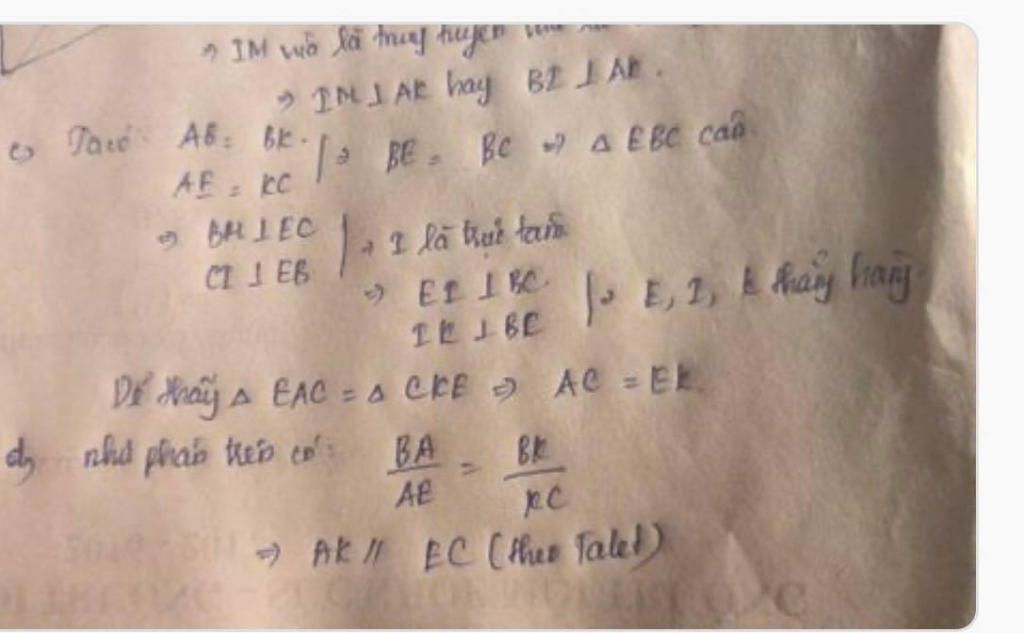 ⇒ IM vuô là trung tuyến
⇒ IM ⊥ AK hay BI ⊥ AK.
c, Ta có: AB = BK.
AE = KC
⇒ BE = BC ⇒ Δ EBC cân
⇒ BM ⊥ EC
CI ⊥ EB
⇒ I là trực tâm
⇒ EI ⊥ BC.
IK ⊥ BC
⇒ E, I, K thẳng hàng
Dễ thấy Δ EAC = Δ CKE ⇒ AC = EK.
d, như phần trên có: BA/AE = BK/KC
⇒ AK // EC (theo Talet)